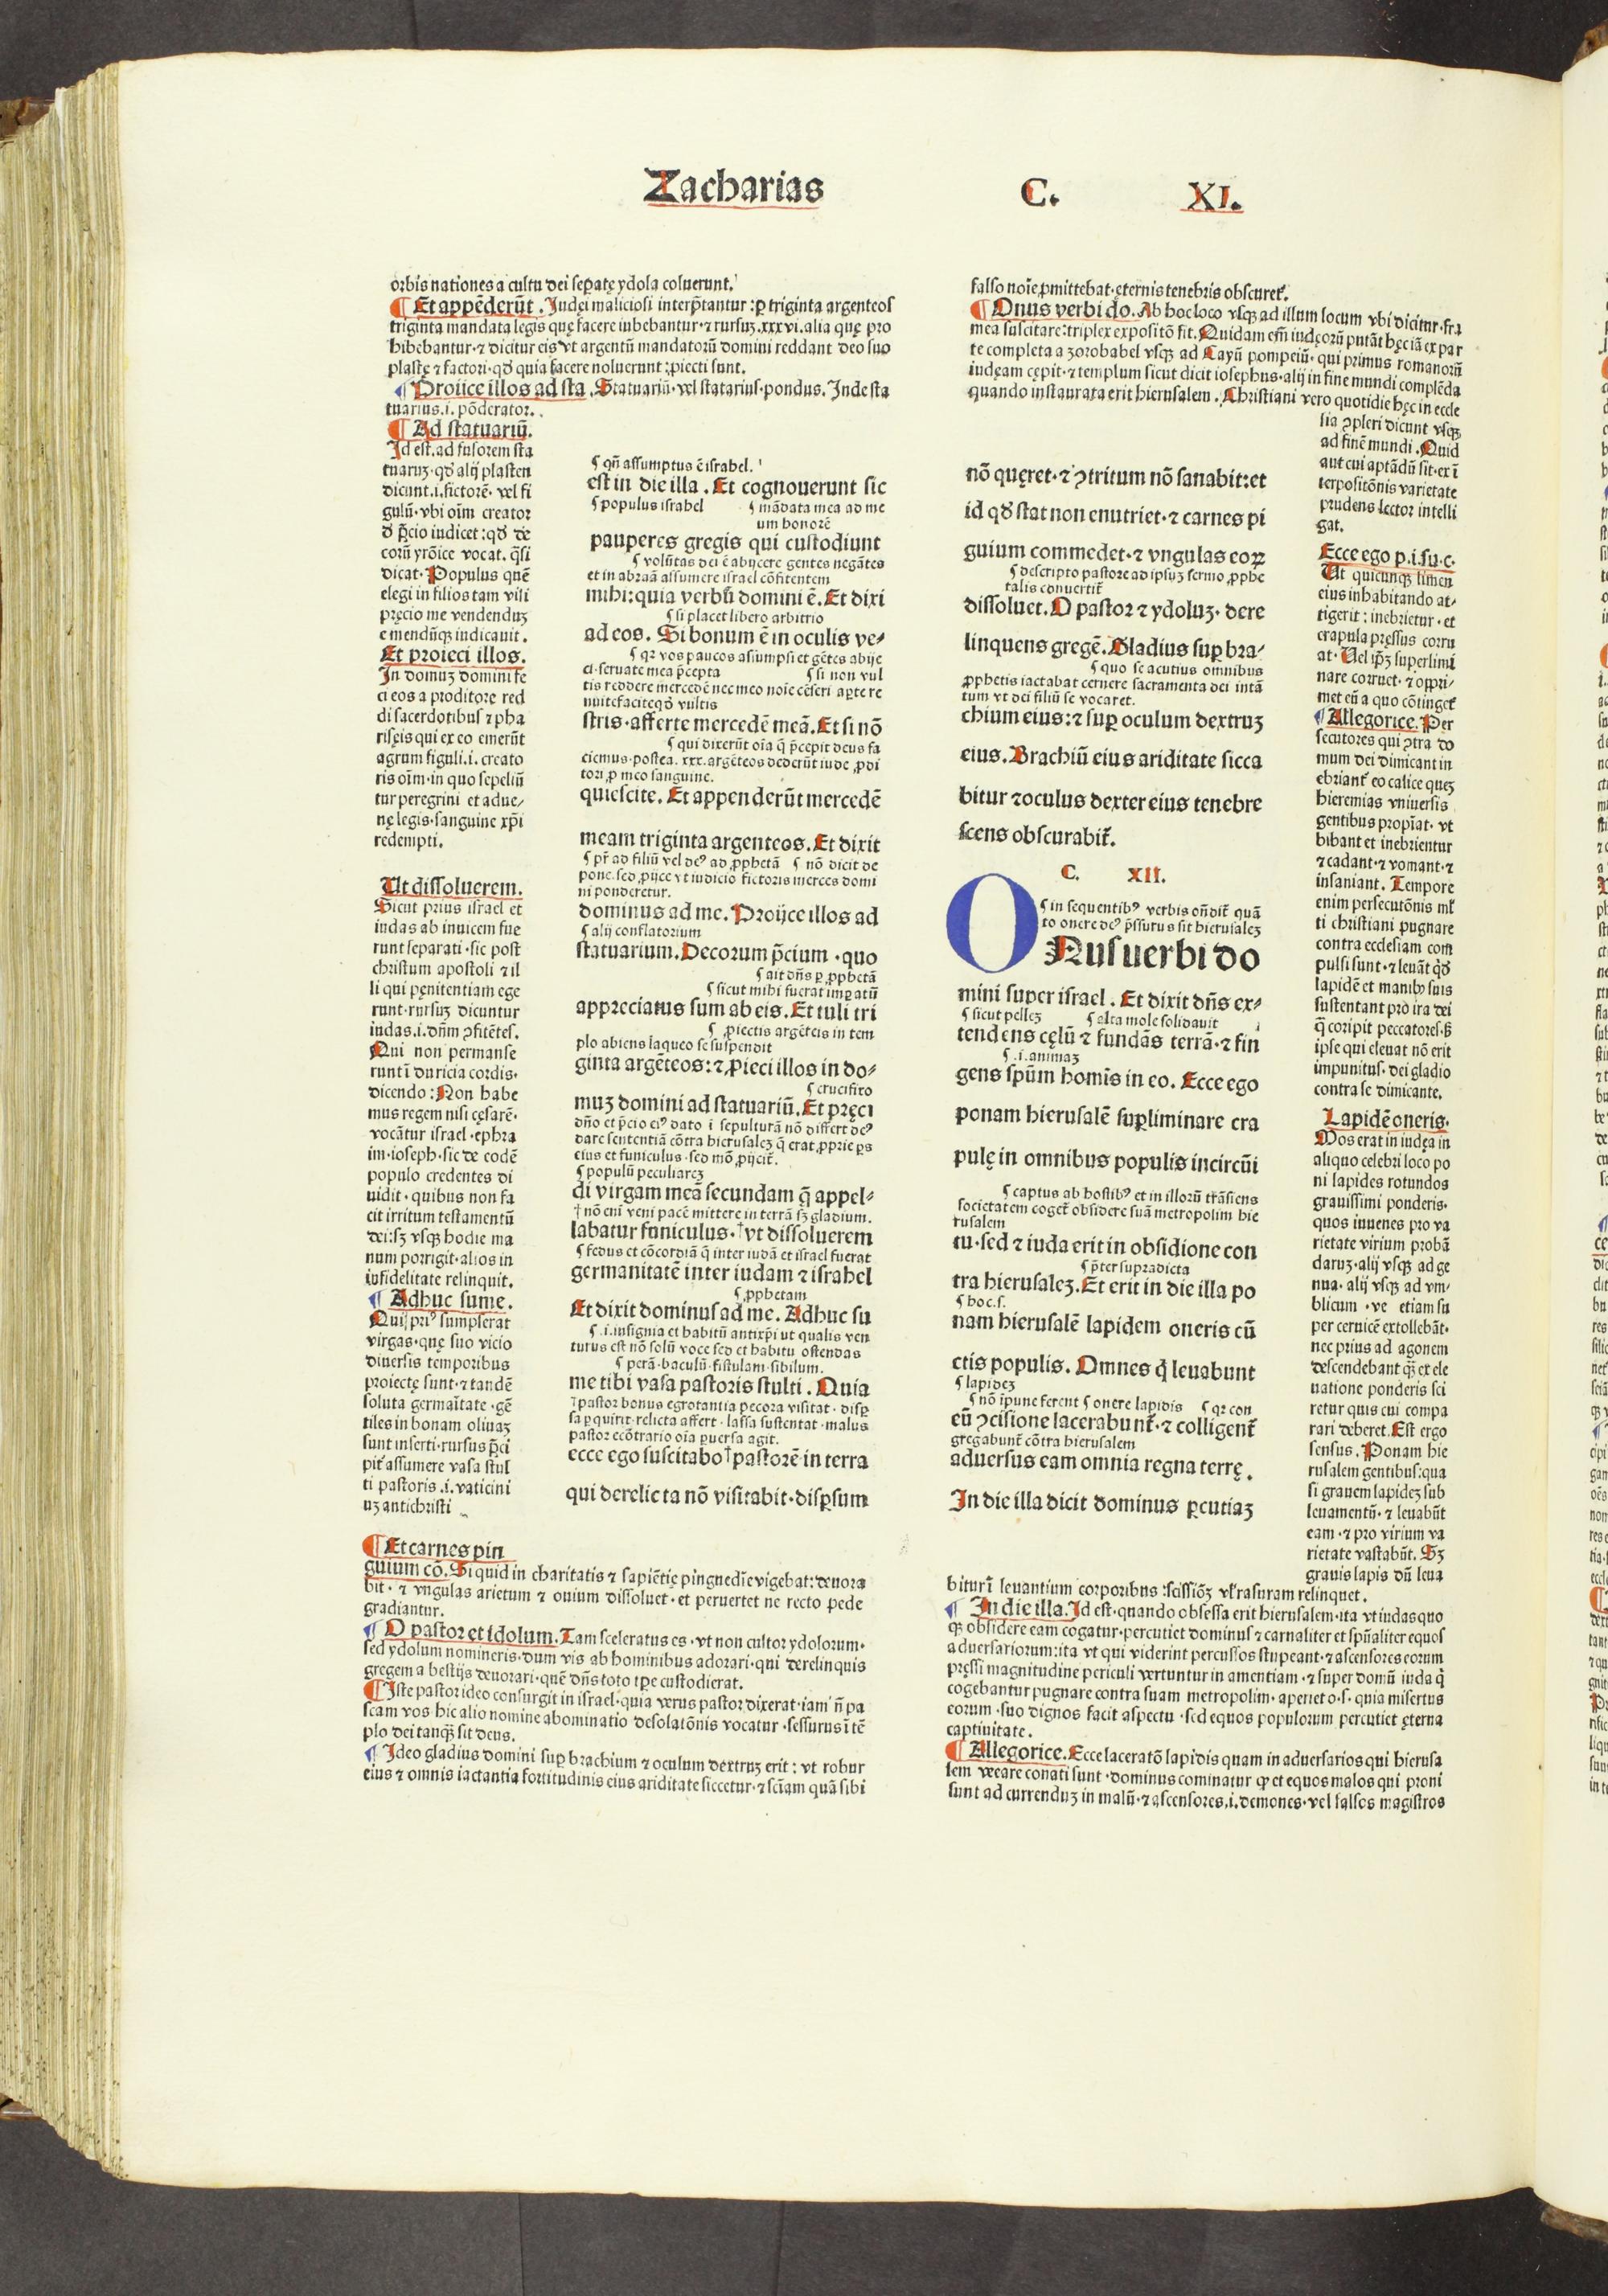 Zacharias C. XI.
orbis nationes a cultu dei sep̄atę ydola coluerunt.
¶ Et appēderūt. Iudęi maliciosi interp̄tantur: ꝑ triginta argenteos
triginta mandata legis quę facere iubebantur·⁊ rursuꝫ.xxxvi.alia quę pro
hibebantur·⁊ dicitur eis vt argentū mandatorū domini reddant deo suo
plastę ⁊ factori·qđ quia facere noluerunt ꝓiecti sunt.
¶ Proiice illos ad sta. Statuariū·vel statarius·pondus. Inde sta
tuarius.i.pōderator.
¶ Ad statuariū.
Id est.ad fusorem sta
tuaruꝫ·qđ alij plasten
dicunt.i.fictorē·vel fi
gulū·vbi oīm creator
đ p̄cio iudicet:qđ de
corū yrōice vocat.q̄si
dicat·Populus quē
elegi in filios tam vili
pręcio me vendenduꝫ
emendūqꝫ iudicauit.
Et proieci illos.
In domuꝫ domini ie
ci eos a proditore red
di sacerdotibus ⁊ pha
risęis qui ex eo emerūt
agrum figuli.i.creato
ris oīm·in quo sepeliū
tur peregrini et adue/
nę legis·sanguine xp̄i
redempti.
Ut dissoluerem.
Sicut prius israel et
iudas ab inuicem fue
runt separati·sic post
christum apostoli ⁊ il
li qui pęnitentiam ege
runt·rursuꝫ dicuntur
iudas.i.dn̄m ꝯfitētes.
Qui non permanse
runt ī duricia cordis·
dicendo: Non habe
mus regem nisi cęsarē·
vocātur israel·ephra
im·ioseph·sic de eodē
populo credentes di
uidit·quibus non fa
cit irritum testamentū
dei:sꝫ vsqꝫ hodie ma
num porrigit·alios in
infidelitate relinquit.
¶ Adhuc sume.
Qui priꝰ sumpserat
virgas·quę suo vicio
diuersis temporibus
proiectę sunt·⁊ tandē
soluta germaītate·gē
tiles in bonam oliuaꝫ
sunt inserti·rursus p̄ci
pit̄ assumere vasa stul
ti pastoris.i.vaticini
uꝫ antichristi
¶ qn̄ assumptus ē israhel.
est in die illa. Et cognouerunt sic
¶ populus israhel ¶ mādata mea ad me
um honorē
pauperes gregis qui custodiunt
¶ volūtas dei ē abijcere gentes negātes
et in abraā assumere israel cōfitentem
mihi:quia verbū domini ē. Et dixi
¶ si placet libero arbitrio
ad eos. Si bonum ē in oculis ve/
¶ qꝛ vos paucos asiumpsi et gētes abije
ci·seruate mea p̄cepta ¶ si non vul
tis reddere mercedē nec meo noīe cēseri aꝑte re
nuite faciteqđ vultis
stris·afferte mercedē meā. Et si nō
¶ qui dixerūt oīa q̄ p̄cepit deus fa
ciemus·postea.xxx.argēteos dederūt iude ꝓdi
tori ꝓ meo sanguine.
quiescite. Et appenderūt mercedē
meam triginta argenteos. Et dixit
¶ pr̄ ad filiū vel deꝰ ad ꝓphetā ¶ nō dicit de
pone.sed ꝓijce vt iudicio fictoris merces domi
ni ponderetur.
dominus ad me. Proijce illos ad
¶ alij conflatorium
statuarium. Decorum p̄cium·quo
¶ ait dn̄s ꝑ ꝓphetā
¶ sicut mihi fuerat imꝑatū
appreciatus sum ab eis. Et tuli tri
¶ ꝓiectis argēteis in tem
plo abiens laqueo se suspendit
ginta argēteos:⁊ ꝓieci illos in do/
¶ crucifixo
muꝫ domini ad statuariū. Et pręci
dn̄o et p̄cio eiꝰ dato ī sepulturā nō differt deꝰ
dare sententiā cōtra hierusaleꝫ q̄ erat ꝓprie ꝑs
eius et funiculus·sed mō ꝓijcit̄.
¶ populū peculiareꝫ
di virgam meā secundam q̄ appel/
† nō eni veni pacē mittere in terrā sꝫ gladium.
labatur funiculus·†vt dissoluerem
¶ fedus et cōcordiā q̄ inter iudā et israel fuerat
germanitatē inter iudam ⁊ israhel
¶ ꝓphetam
Et dixit dominus ad me. Adhuc su
¶ .i.insignia et habitū antixp̄i ut qualis ven
turus est nō solū voce sed et habitu ostendas
¶ perā·baculū·fistulam·sibilum.
me tibi vasa pastoris stulti. Quia
†pastor bonus egrotantia pecora visitat·disꝑ
sa ꝑquirit·relicta affert·lassa sustentat·malus
pastor ecōtrario oīa ꝑuersa agit.
ecce ego suscitabo†pastorē in terra
qui derelicta nō visitabit·disꝑsum
¶ Et carnes pin
guium cō. Si quid in charitatis ⁊ sapiētię pingnedīe vigebat:deuora
bit·⁊ vngulas arietum ⁊ ouium dissoluet·et peruertet ne recto pede
gradiantur.
¶ O pastor et idolum. Tam sceleratus es·vt non cultor ydolorum·
sed ydolum nomineris·dum vis ab hominibus adorari·qui derelinquis
gregem a bestijs deuorari·quē dn̄s toto tꝑe custodierat.
¶ Iste pastor ideo consurgit in israel·quia verus pastor dixerat·iam n̄ pa
scam vos hic alio nomine abominatio desolatōnis vocatur·sessurus ī tē
plo dei tanqꝫ sit deus.
¶ Ideo gladius domini suꝑ brachium ⁊ oculum dextruꝫ erit: vt robur
eius ⁊ omnis iactantia fortitudinis eius ariditate siccetur·⁊ scīam quā sibi
falso noīe ꝓmittebat·ęternis tenebris obscuret̄.
¶ Onus verbi do. Ab hoc loco vsqꝫ ad illum locum vbi dicitur·fra
mea suscitare:triplex expositō fit. Quidam em̄ iudęorū putāt hęc iā ex par
te completa a zorobabel vsqꝫ ad Cayū pompeiū·qui primus romanorū
iudęam cępit·⁊ templum sicut dicit iosephus·alij in fine mundi complēda
quando instaurata erit hierusalem. Christiani vero quotidie hęc in eccle
sia ꝯpleri dicunt vsqꝫ
ad finē mundi. Quid
aut cui aptādū sit·ex ī
terpositōnis varietate
prudens lector intelli
gat.
nō quęret·⁊ ꝯtritum nō sanabit:et
id qđ stat non enutriet·⁊ carnes pi
guium commedet·⁊ vngulas eoꝝ
¶ descripto pastore ad ipsuꝫ sermo ꝓphe
talis conuertit̄
dissoluet. O pastor ⁊ ydoluꝫ·dere
linquens gregē. Gladius suꝑ bra/
¶ quo se acutius omnibus
ꝓphetis iactabat cernere sacramenta dei intā
tum vt dei filiū se vocaret.
chium eius:⁊ suꝑ oculum dextruꝫ
eius. Brachiū eius ariditate sicca
bitur ⁊ oculus dexter eius tenebre
scens obscurabit̄.
C. XII.
¶ in sequentibꝰ verbis on̄dit̄ quā
to onere deꝰ p̄ssurus sit hierusaleꝫ
ONus uerbi do
mini super israel. Et dixit dn̄s ex/
¶ sicut pelleꝫ ¶ alta mole solidauit
tendens cęlū ⁊ fundās terrā·⁊ fin
¶ .i.animaꝫ
gens spūm homīs in eo. Ecce ego
ponam hierusalē suꝑliminare cra
pulę in omnibus populis incircūi
¶ captus ab hostibꝰ et in illorū trāsiens
societatem coget̄ obsidere suā metropolim hie
rusalem
tu·sed ⁊ iuda erit in obsidione con
¶ p̄ter supradicta
tra hierusaleꝫ. Et erit in die illa po
¶ hoc.s.
nam hierusalē lapidem oneris cū
ctis populis. Omnes q̄ leuabunt
¶ lapideꝫ
¶ nō īpune ferent ¶ onere lapidis ¶ qꝛ con
eū ꝯcisione lacerabunt̄·⁊ colligent̄
gregabunt̄ cōtra hierusalem
aduersus eam omnia regna terrę.
In die illa dicit dominus ꝑcutiaꝫ
Ecce ego p.i.su.c.
Ut quicunqꝫ limen
eius inhabitando at/
tigerit: inebrietur·et
crapula pressus corru
at·Uel ip̄ꝫ superlimi
nare corruet·⁊ oppri/
met eū a quo cōtinget̄
¶ Allegorice. Per
secutores qui ꝯtra do
mum dei dimicant in
ebriant̄ eo calice queꝫ
hieremias vniuersis
gentibus propīat·vt
bibant et inebrientur
⁊ cadant·⁊ vomant·⁊
insaniant. Tempore
enim persecutōnis ml̄
ti christiani pugnare
contra ecclesiam com
pulsi sunt·⁊ leuāt q̄đ
lapidē et manibꝫ suis
sustentant pro ira dei
q̄ coripit peccatores·sꝫ
ipse qui eleuat nō erit
impunitus·dei gladio
contra se dimicante.
Lapidē oneris.
Mos erat in iudęa in
aliquo celebri loco po
ni lapides rotundos
grauissimi ponderis·
quos iuuenes pro va
rietate virium probā
daruꝫ·alij vsqꝫ ad ge
nua·alij vsqꝫ ad vm/
blicum·ve etiam su
per ceruicē extollebāt·
nec prius ad agonem
descendebant qꝫ ex ele
uatione ponderis sci
retur quis cui compa
rari deberet. Est ergo
sensus. Ponam hie
rusalem gentibus:qua
si grauem lapideꝫ sub
leuamentū·⁊ leuabūt
eam·⁊ pro virium va
rietate vastabūt. Sꝫ
grauis lapis dū leua
bitur ī leuantium corporibus:scissiōꝫ vl̓ rasuram relinquet.
¶ In die illa. Id est·quando obsessa erit hierusalem·ita vt iudas quo
qꝫ obsidere eam cogatur·percutiet dominus ⁊ carnaliter et spūaliter equos
aduersariorum:ita vt qui viderint percussos stupeant·⁊ ascensores eorum
pręssi magnitudine periculi vertuntur in amentiam·⁊ super domū iuda q̄
cogebantur pugnare contra suam metropolim·aperiet o.s. quia misertus
eorum·suo dignos facit aspectu·sed equos populorum percutiet ęterna
captiuitate.
¶ Allegorice. Ecce laceratō lapidis quam in aduersarios qui hierusa
lem vexare conati sunt·dominus cominatur qꝫ et equos malos qui proni
sunt ad currenduꝫ in malū·⁊ ascensores.i.demones·vel falsos magistros